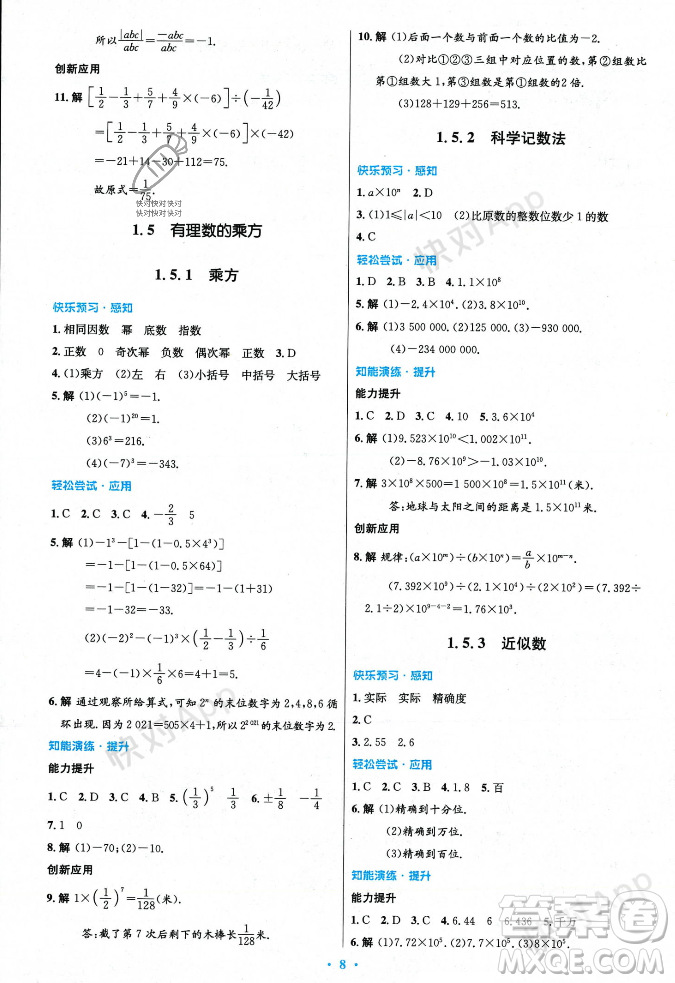 所以|abc|/abc=-abc/abc=-1.
创新应用
11.解 [1/2-1/3+5/7+4/9×(-6)]÷(-1/42)
=[1/2-1/3+5/7+4/9×(-6)]×(-42)
=-21+14-30+112=75.
故原式=1/75.
快对快对快对
快对快对快对
1.5 有理数的乘方
1.5.1 乘方
快乐预习·感知
1.相同因数 幂 底数 指数
2.正数 0 奇次幂 负数 偶次幂 正数 3.D
4.(1)乘方 (2)左 右 (3)小括号 中括号 大括号
5.解 (1)(-1)⁵=-1.
(2)(-1)²⁰=1.
(3)6³=216.
(4)(-7)³=-343.
轻松尝试·应用
1.C 2.D 3.C 4.-2/3 5
5.解 (1)-1³-[1-(1-0.5×4³)]
=-1-[1-(1-0.5×64)]
=-1-[1-(1-32)]=-1-(1+31)
=-1-32=-33.
(2)(-2)²-(-1)³×(1/2-1/3)÷1/6-|-2|
=4-(-1)×1/6×6-2=4+1-2=3.
6.解 通过观察所给算式,可知2ⁿ的末位数字为2,4,8,6循
环出现.因为2 021=505×4+1,所以2²⁰²¹的末位数字为2.
知能演练·提升
能力提升
1.C 2.D 3.C 4.B 5.(1/3)⁵ 1/3 6.±1/8 -1/4
7.1 0
8.解 (1)-70;(2)-10.
创新应用
9.解 1×(1/2)⁷=1/128(米).
答:截了第7次后剩下的木棒长1/128米.
10.解 (1)后面一个数与前面一个数的比值为-2.
(2)对比①②③三组中对应位置的数,第②组数比
第①组数大1,第③组数是第①组数的2倍.
(3)128+129+256=513.
1.5.2 科学记数法
快乐预习·感知
1.a×10ⁿ 2.D
3.(1)1≤|a|<10 (2)比原数的整数位数少1的数
4.C
轻松尝试·应用
1.D 2.C 3.C 4.1.3×10⁸
5.解 (1)-2.4×10⁴.(2)3.8×10¹¹.
6.解 (1)3 500 000.(2)510.(3)-930 000.
(4)-234 000 000.
知能演练·提升
能力提升
1.C 2.D 3.C 4.10 5.3.6×10⁴
6.解 (1)9.523×10¹⁰<1.002×10¹¹.
(2)-8.76×10⁹>-1.03×10¹⁰.
7.解 3×10⁸×500=1 500×10⁸=1.5×10¹¹(米).
答:地球与太阳之间的距离是1.5×10¹¹米.
创新应用
8.解 规律:(a×10ᵐ)÷(b×10ⁿ)=a/b×10ᵐ⁻ⁿ.
(7.392×10⁹)÷(1.1×10⁴)÷(2.1×10²)=(7.392÷1.1÷
2.1)×10⁹⁻⁴⁻²=3.2×10³.
1.5.3 近似数
快乐预习·感知
1.实际 实际 精确度
2.C
3.2.55 2.6
轻松尝试·应用
1.C 2.D 3.D 4.1.8 5.百
6.解 (1)精确到十分位.
(2)精确到万位.
(3)精确到百位.
知能演练·提升
能力提升
1.C 2.D 3.C 4.6.44 6 6.436 5.千万
6.解 (1)7.72×10⁵.(2)5.70×10⁷.(3)8×10⁵.
· 8 ·
快对App
快对App
快对App
快对App
答案圈